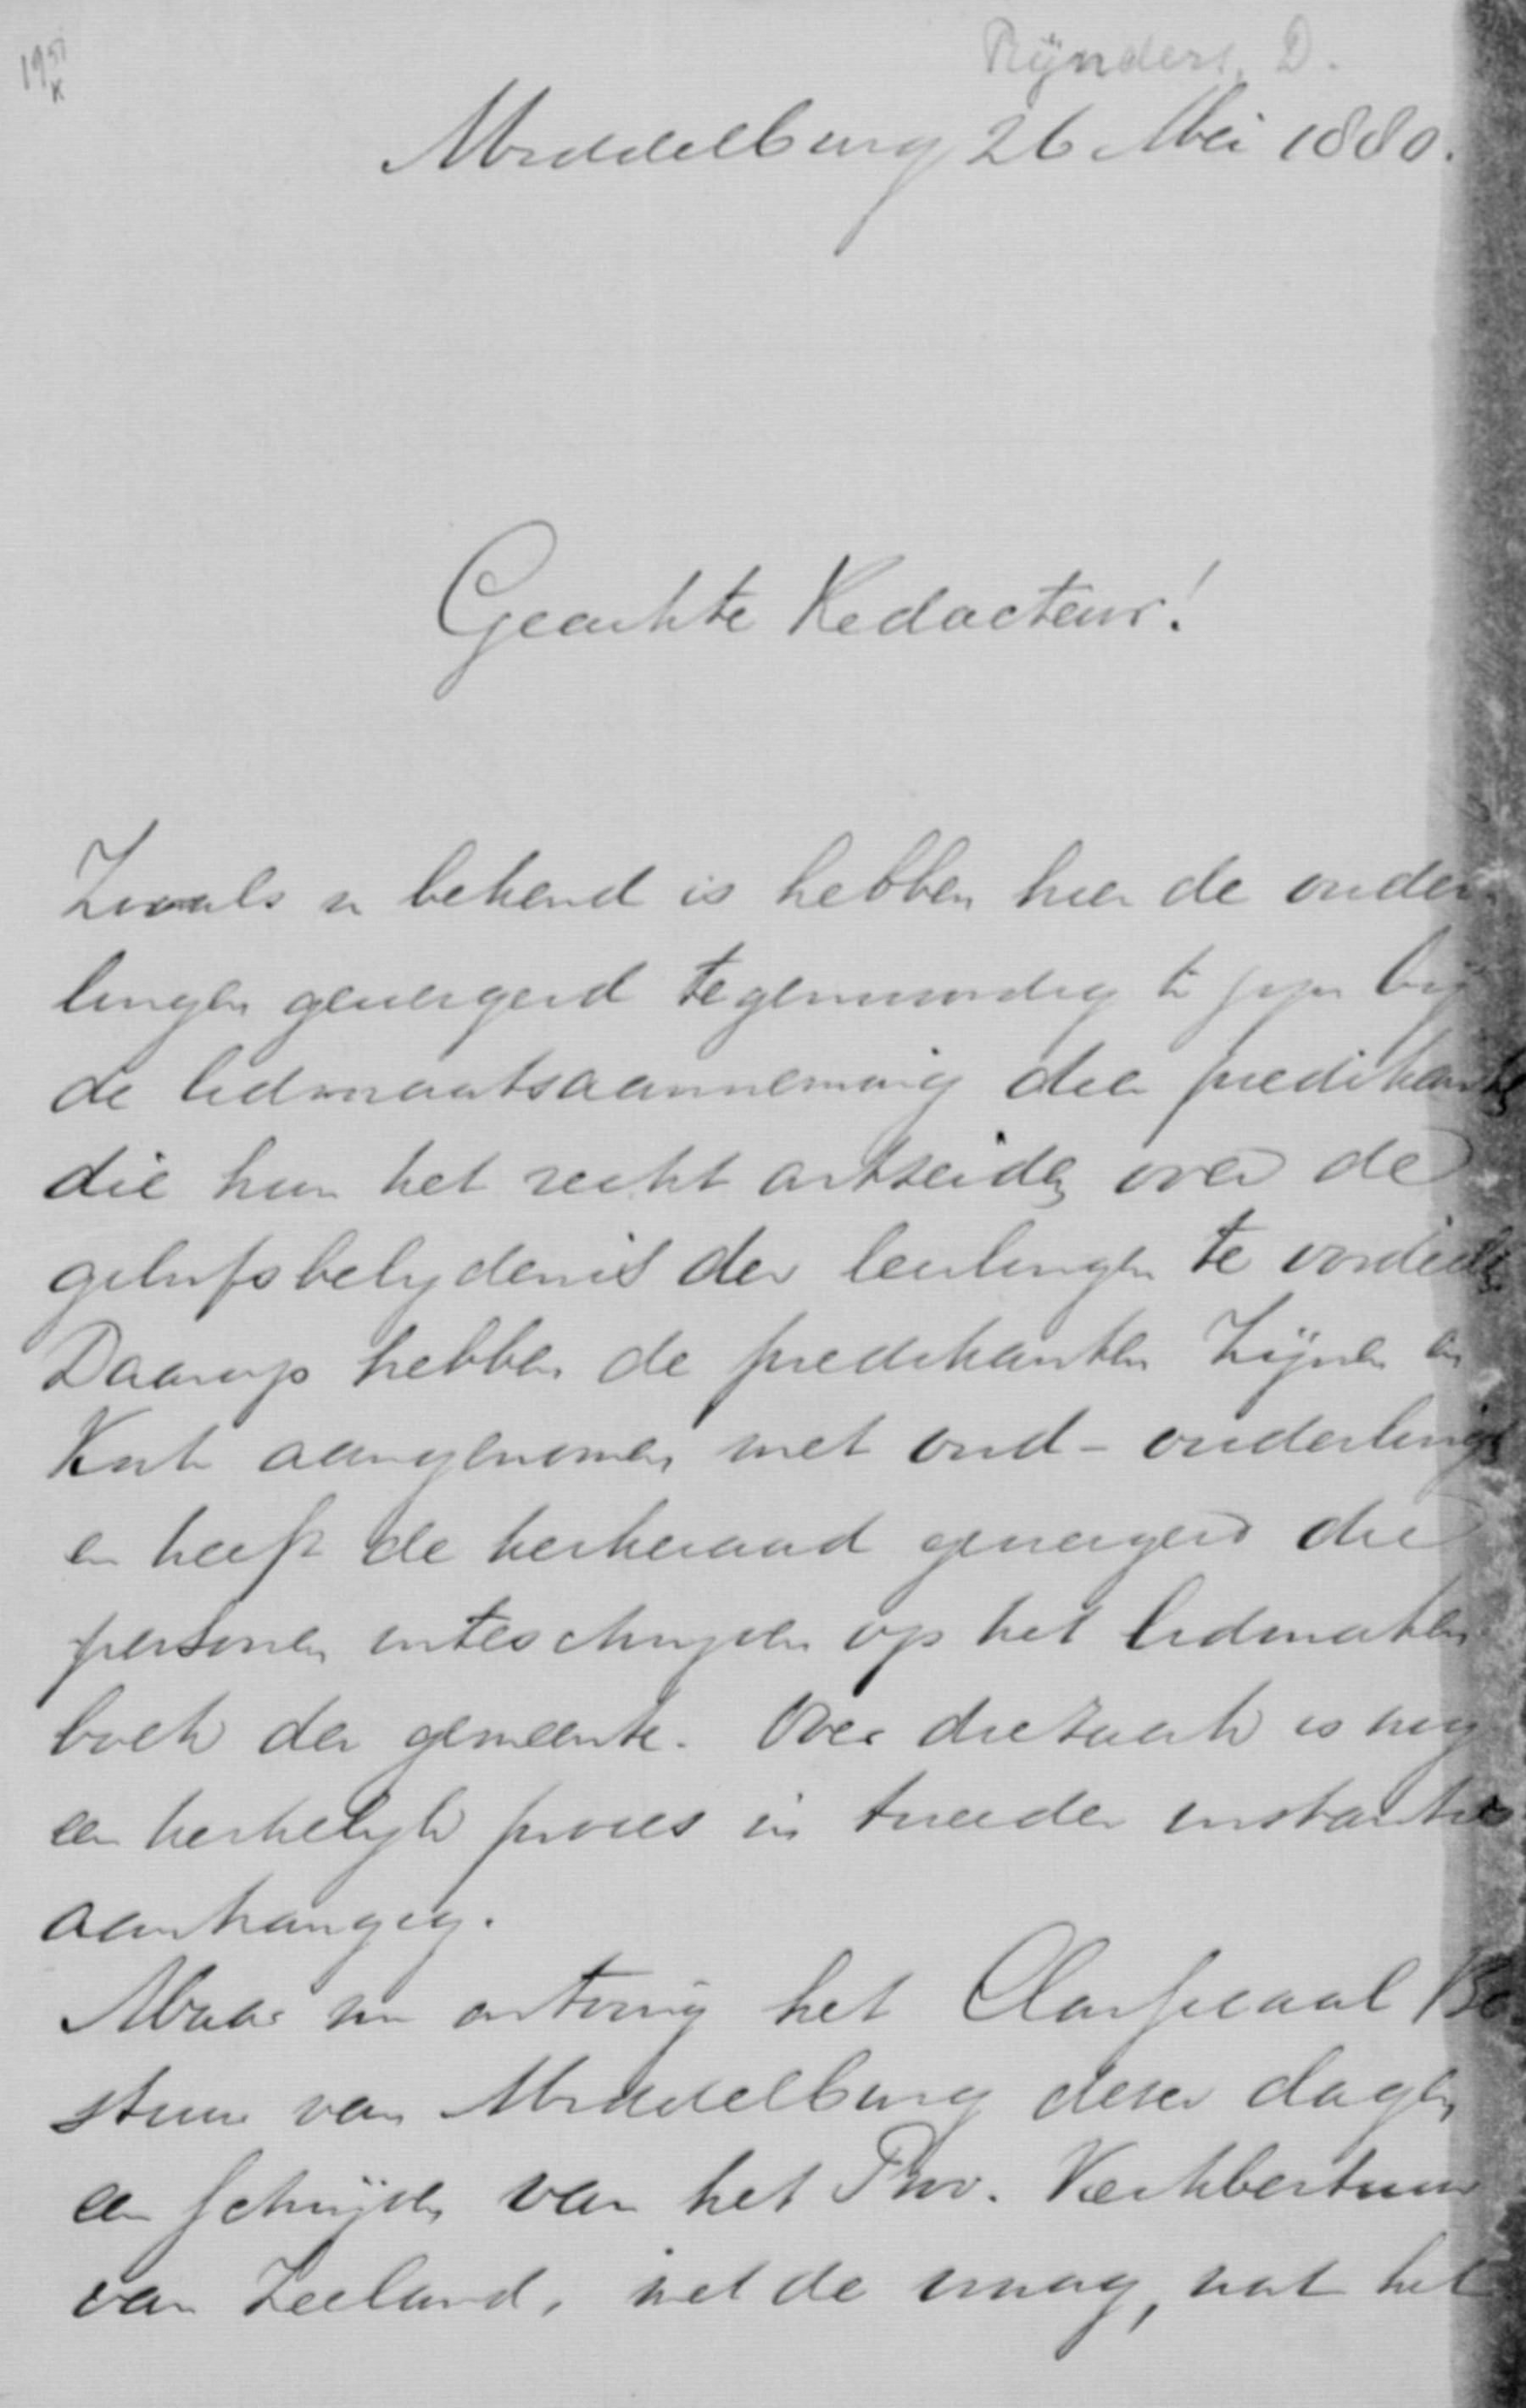 1951
K
Rijnders, D.
Middelburg 26 Mei 1880.
Geachte Redacteur!
Zooals u bekend is hebben hier de ouder-
lingen geweigerd tegenwoordig te zijn bij
de lidmaatsaanneming der predikanten
die hun het recht ontzeiden over de
geloofsbelydenis der leerlingen te oordeelen
Daarop hebben de predikanten en
aangenomen met oud-ouderlingen
en heeft de kerkeraad geweigerd die
personen inteschrijven op het lidmaten
boek der gemeente. Over die zaak is nog
een kerkelijk proces in tweeder instantie
aanhangig.
Maar nu ontving het Classicaal Be
stuur van Middelburg dezer dagen
een schrijven van het Prov. Kerkbestuur
van Zeeland, met de vraag, wat het